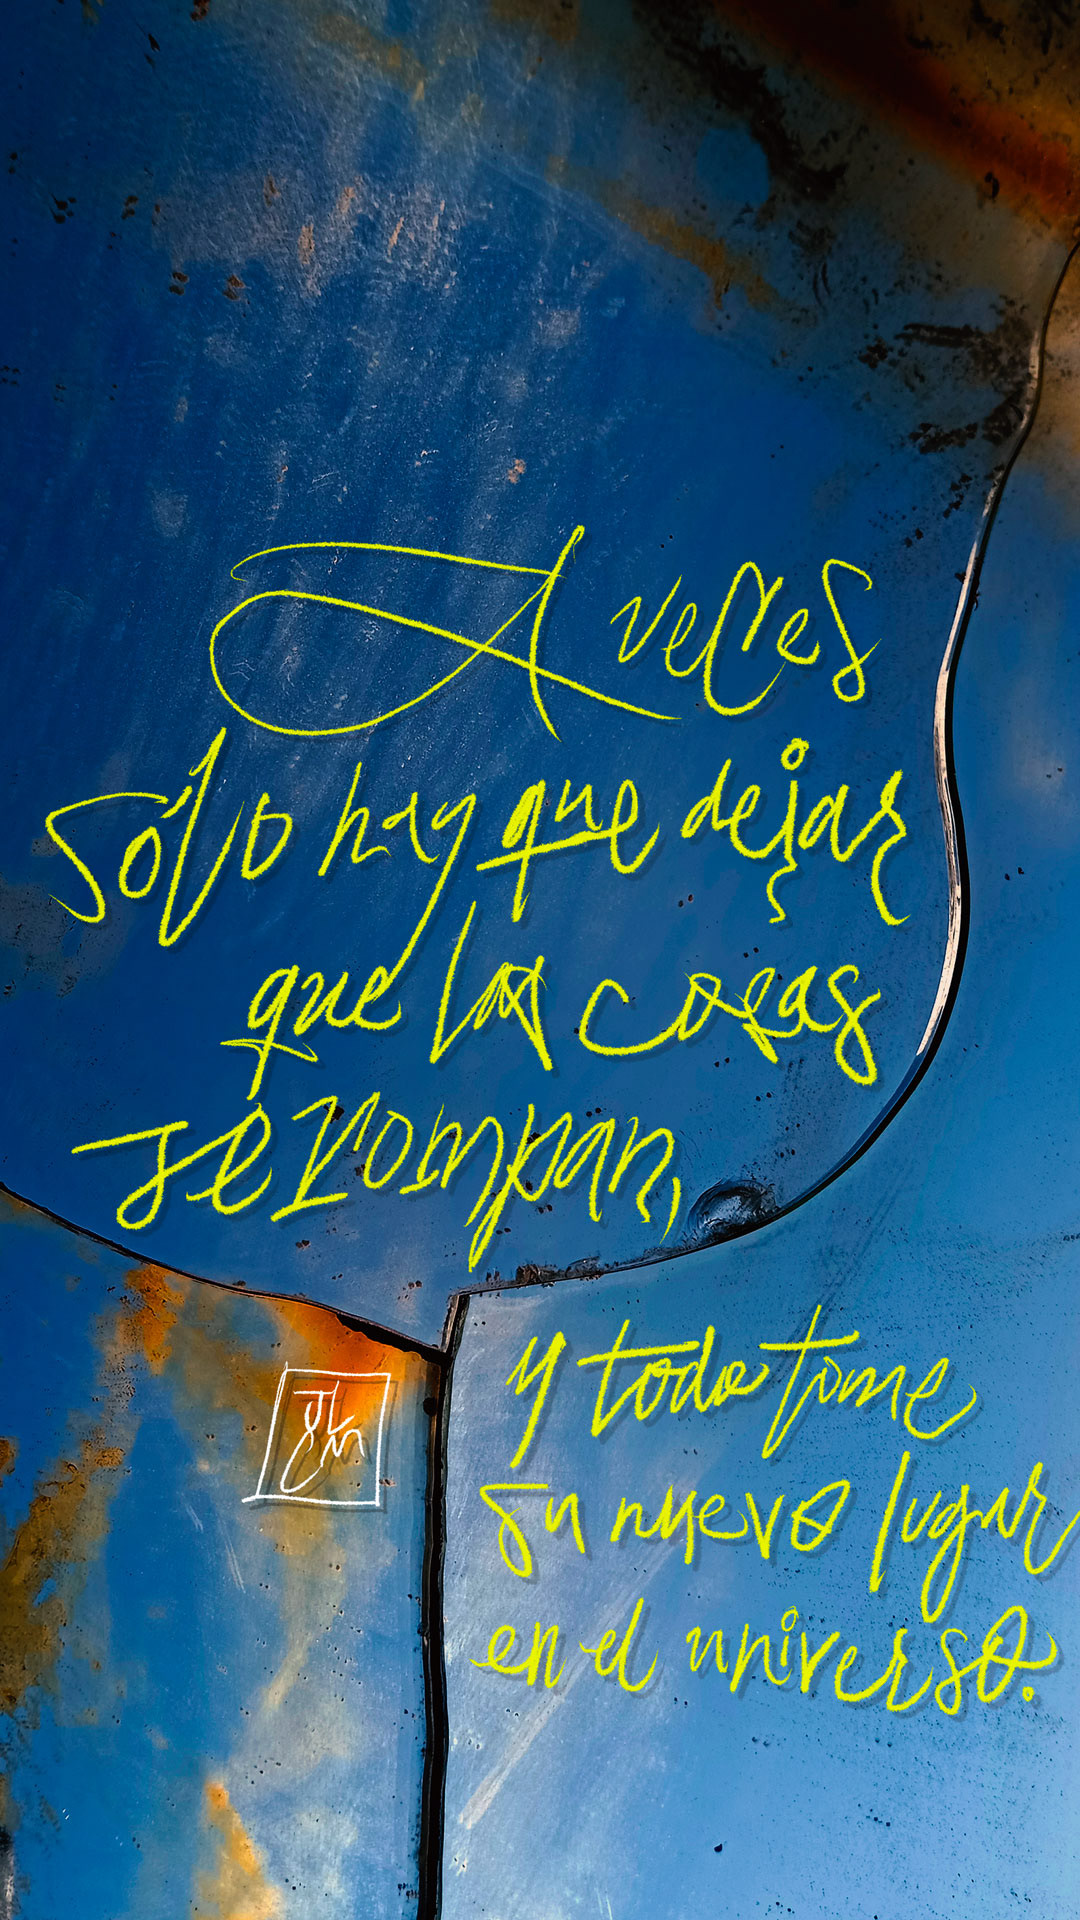 A veces
sólo hay que dejar
que las cosas
se rompan,
y todo tome
su nuevo lugar
en el universo.